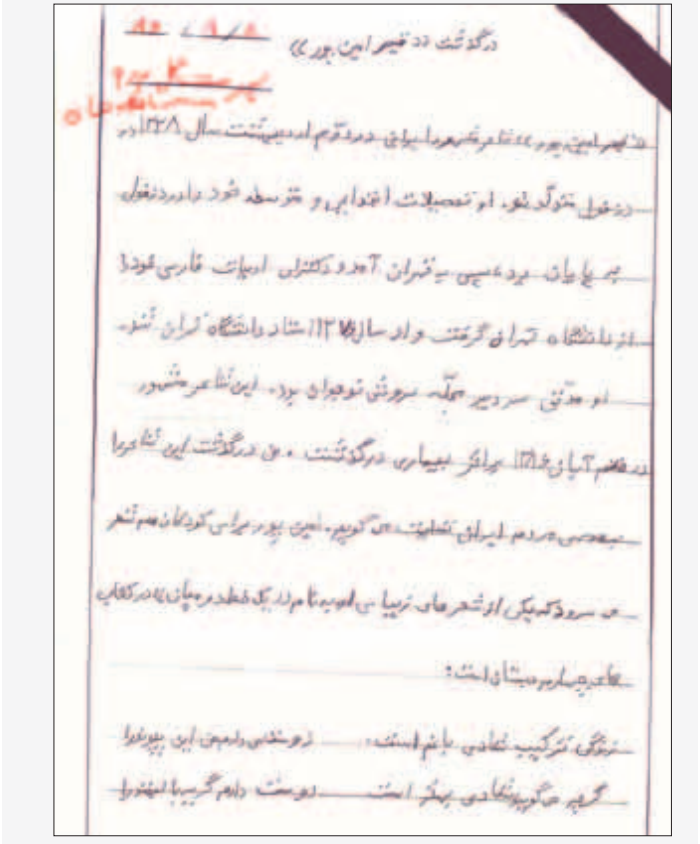 درگذشت «قیصر امین پور»
۸۶ / ۹ / ۸
«قیصر امین پور» شاعر مشهور ایرانی در دوّم اردیبهشت سال ۱۳۳۸ در
دزفول متولّد شد. او تحصیلات ابتدایی و متوسطه خود را در دزفول
به پایان برد. سپس به تهران آمد و دکترای ادبیات فارسی خود را
از دانشگاه تهران گرفت و از سال استاد دانشگاه تهران شد.
او مدّتی سردبیر مجلّه سروش نوجوان بود. این شاعر مشهور
در هشتم آبان ۱۳۸۶ براثر بیماری درگذشت. من درگذشت این شاعر را
به همه‌ی مردم ایران تسلیت می گویم. امین پور برای کودکان هم شعر
می سرود که یکی از شعر های زیبا ی او به نام در کتاب
های دبستان است:
زندگی ترکیب شادی باغم است دوست می دارم من این پیوند را
گرچه می گویند شادی بهتر است دوست دارم گریه با لبخند را